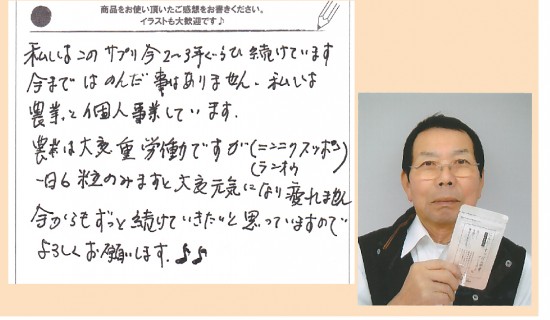 商品をお使い頂いたご感想をお書きください。
イラストも大歓迎です♪
私しはこのサプリ今2～3年ぐらい続けています
今まではのんだ事はありません、私しは
農業と個人事業しています。
農業は大変重労働ですが(ニンニクスッポン
(ランオウ)
一日6粒のみますと大変元気になり疲れません
今からもずっと続けていきたいと思っていますので
よろしくお願いします。♪♪